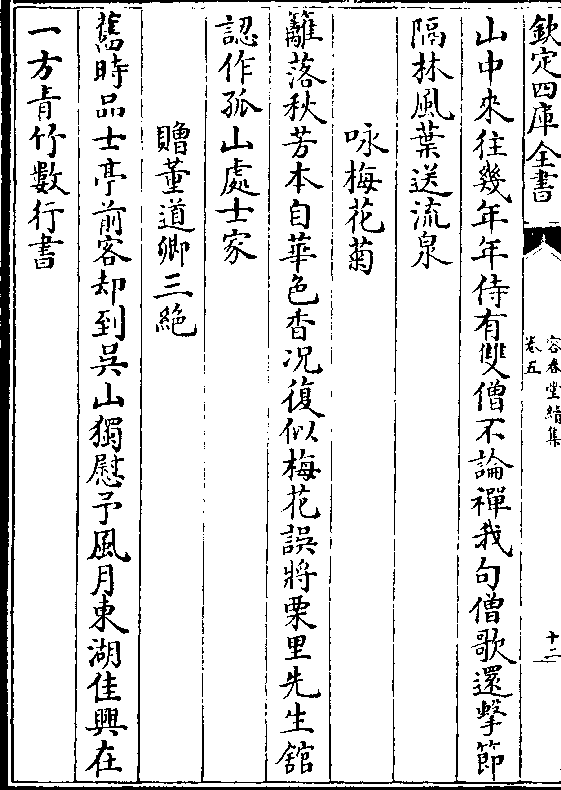 欽定四庫全書
容春堂續集
卷五
十二
山中來往幾年年侍有雙僧不論禪我句僧歌還擊節
隔林風葉送流泉
咏梅花菊
籬落秋芳本自華色香况復似梅花誤將栗里先生舘
認作孤山處士家
贈董道卿三絶
舊時品士亭前客却到吳山獨慰予風月東湖佳興在
一方青竹數行書